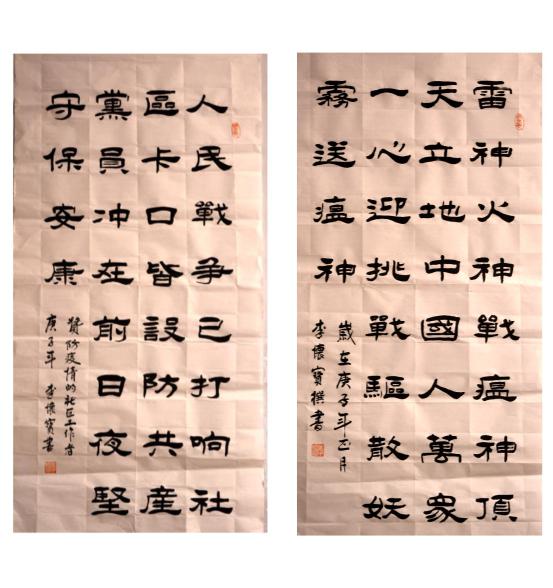 雷神火神戰瘟神頂
天立地中國人萬眾
一心迎挑戰驅散妖
霧送瘟神
歲在庚子年正月
李懷寶撰書
人民戰争已打响社
區卡口皆設防共產
黨員冲在前日夜堅
守保安康
贊防疫情的社区工作者
庚子年 李懷寶書